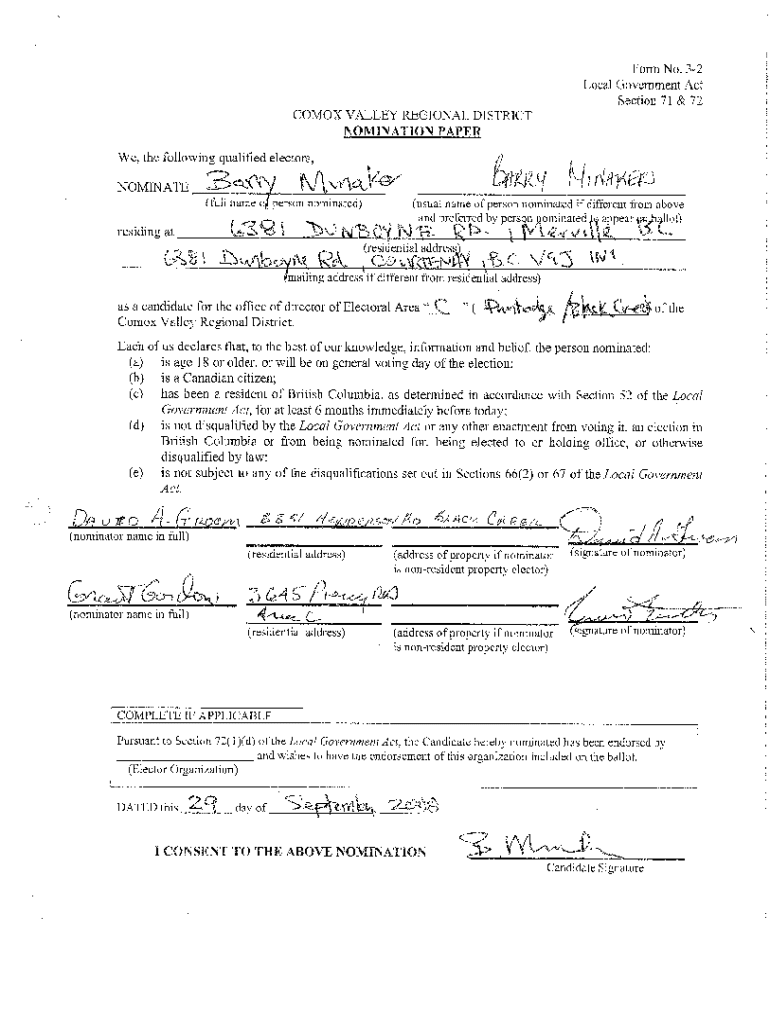 Form No. 3-2
Local Government Act
Section 71 & 72
COMOX VALLEY REGIONAL DISTRICT
NOMINATION PAPER
We, the following qualified electors,
NOMINATE Barry Minaker BARRY MINAKER
(full name of person nominated) (usual name of person nominated if different from above
and preferred by person nominated to appear on ballot)
residing at 6381 DUNBOYNE RD., Merville B.C.
(residential address)
6381 Dunboyne Rd. COURTENAY, B.C. V9J 1N1
(mailing address if different from residential address)
as a candidate for the office of director of Electoral Area " C " ( Puntledge / Black Creek of the
Comox Valley Regional District.
Each of us declares that, to the best of our knowledge, information and belief, the person nominated:
(a) is age 18 or older, or will be on general voting day of the election;
(b) is a Canadian citizen;
(c) has been a resident of British Columbia, as determined in accordance with Section 52 of the Local
Government Act, for at least 6 months immediately before today;
(d) is not disqualified by the Local Government Act or any other enactment from voting in an election in
British Columbia or from being nominated for, being elected to or holding office, or otherwise
disqualified by law;
(e) is not subject to any of the disqualifications set out in Sections 66(2) or 67 of the Local Government
Act.
DAVID A. 8851 HENDERSON RD BLACK CREEK
(nominator name in full) (residential address) (address of property if nominator (signature of nominator)
is non-resident property elector)
Grant Gordon 3645 Piercy Rd
Area C
(nominator name in full) (residential address) (address of property if nominator (signature of nominator)
is non-resident property elector)
COMPLETE IF APPLICABLE
Pursuant to Section 72(1)(d) of the Local Government Act, the Candidate hereby nominated has been endorsed by
and wishes to have the endorsement of this organization included on the ballot.
(Elector Organization)
DATED this 29 day of September 2008
I CONSENT TO THE ABOVE NOMINATION
Candidate Signature